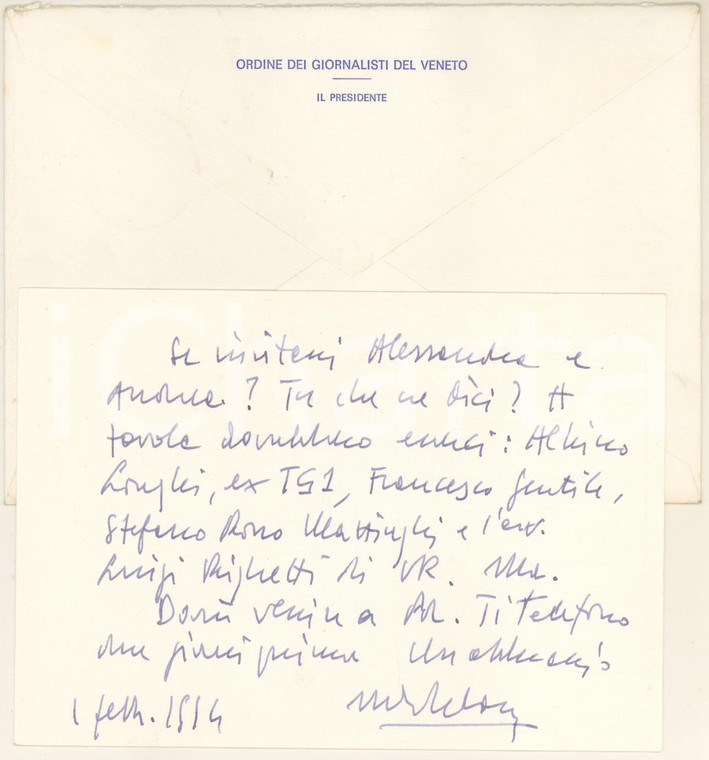 ORDINE DEI GIORNALISTI DEL VENETO
IL PRESIDENTE
Se invitassi Alessandra e
Andrea? Tu che ne dici? A
tavola dovrebbero esserci: Albino
Longhi, ex TG1, Francesco Gentile,
Stefano Rosso Mattinghi e l'avv.
Luigi Righetti di VR. Ma.
Dovrei venire a Ti telefono
due giorni prima Un abbraccio
1 febb. 1994